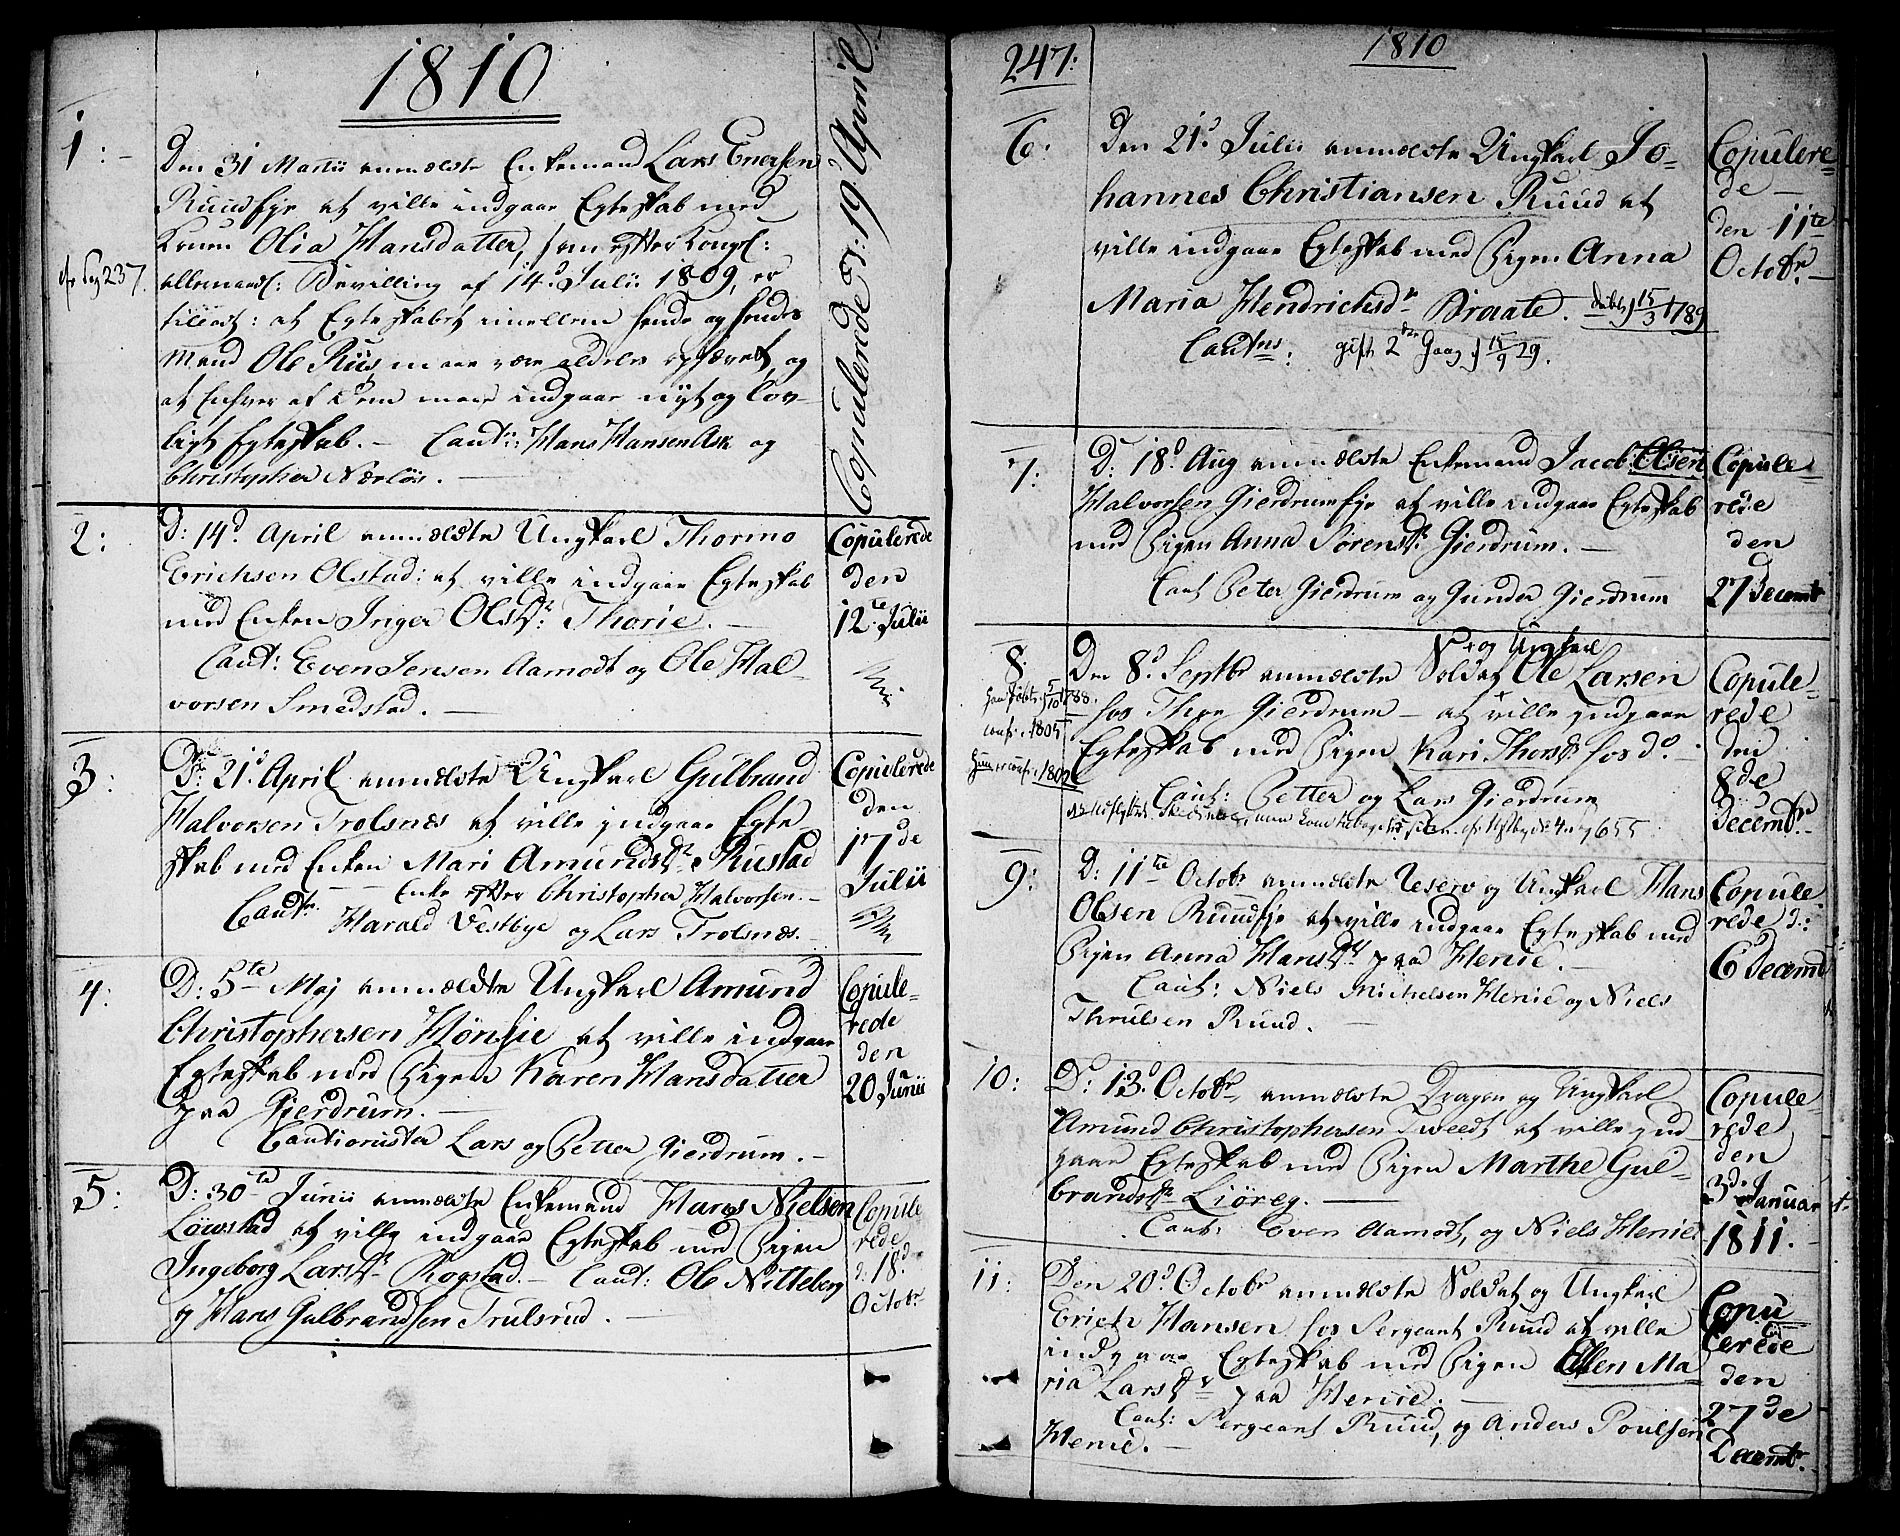 1810
1:
Den 31 Martii anmeldte Enkemand Lars Enersen
Ruudseje at ville indgaae Egteskab med
Konen Olia Hansdatter, som efter Kongel:
cfr Pag 237.
allernaad: Bevilling af 14d Julii 1809, er
tilladt: at Egteskabet imellem hende og hendes
Mand Ole Riis, maae være aldeles ophævet, og
at Enhver af dem maae indgaae nyt og lov-
ligt Egteskab. - Caut: Hans Hansen Ask og
Christopher Nærløs. -
Copulerede d: 19d April
2:
D: 14d April anmeldte Ungkarl Thormo
Erichsen Olstad: at ville indgaae Egteskab
med Enken Inger Olsdr: Thorie. -
Caut: Even Jensen Aamodt og Ole Hal-
vorsen Smedstad. -
Copulerede
den
12te Julii
3:
D: 21d April anmeldte Ungkarl Gulbrand
Halvorsen Trolsnæs at ville indgaae Egte
skab med Enken Mari Amundsdr Rustad
Enke efter Christopher Halvorsen. -
Cautr. Harald Vestbye og Lars Trolsnæs. -
Copulerede
den
17de
Julii
4:
D: 5te Maj anmeldte Ungkarl Amund
Christophersen Hønsie at ville indgaae
Egteskab med Pigen Karen Hansdatter
paa Gjerdrum. -
Cautionister Lars og Petter Gjerdrum. -
Copule-
rede
den
20 Junii
5:
D: 30te Junii anmeldte Enkemand Hans Nielsen
Løwstad at ville indgaae Egteskab med Pigen
Ingeborg Larsdr Rogstad. - Caut: Ole Nitteberg
og Hans Gulbrandsen Trulsrud. -
Copule
rede
d: 18d
Octobr
247:
1810
6:
Den 21d Julii anmeldte Ungkarl Jo-
hannes Christiansen Ruud at
ville indgaae Egteskab med Pigen Anna
Maria Hendrichsdr Braate. døbt 15/3 1789
Cautns: gift 2den Gang 15/9 29.
Copulere-
de -
den 11te
Octobr -
7:
D: 18d Aug anmeldte Enkemand Jacob Olsen
Halvorsen Gierdrumseje at ville indgaae Egteskab
med Pigen Anna Sørensdr Gierdrum. -
Caut Peter Gierdrum og Gunder Gierdrum
Copule-
rede
den
27 Decembr
8:
+ og Ungkarl
Den 8d Septbr anmeldte Soldat Ole Larsen
hos Thor Gierdrum - at ville indgaae
conf. 1805
Egteskab med Pigen Kari Thorsdr hos do. -
Caut: Petter og Lars Gierdrum
Copule-
rede
den
8de
Decembr -
9:
D: 11te Octobr anmeldte Reserv og Ungkarl Hans
Olsen Ruudseje at ville indgaae Egteskab med
Pigen Anna Hansdr paa Henie. -
Caut: Niels Michelsen Henie og Niels
Thrulsen Ruud. -
Copule
rede d:
6d Decemb
10:
D: 13d Octobr anmeldte Dragon og Ungkarl
Amund Christophersen Tweedt at ville ind-
gaae Egteskab med Pigen Marthe Gul-
brandsdr Liøreg. -
Caut: Even Aamodt, og Niels Henie
Copule-
rede
den
3de Januar
1811. -
11:
Den 20d Octobr anmeldte Soldat og Ungkarl
Erich Hansen hos Sergeant Ruud at ville
indgaae Egteskab med Pigen Ellen Ma
ria Larsdr paa Henie. -
Caut: Sergeant Ruud, og Anders Poulsen
Henie. -
Copu
lerede
den
27de
Decembr.